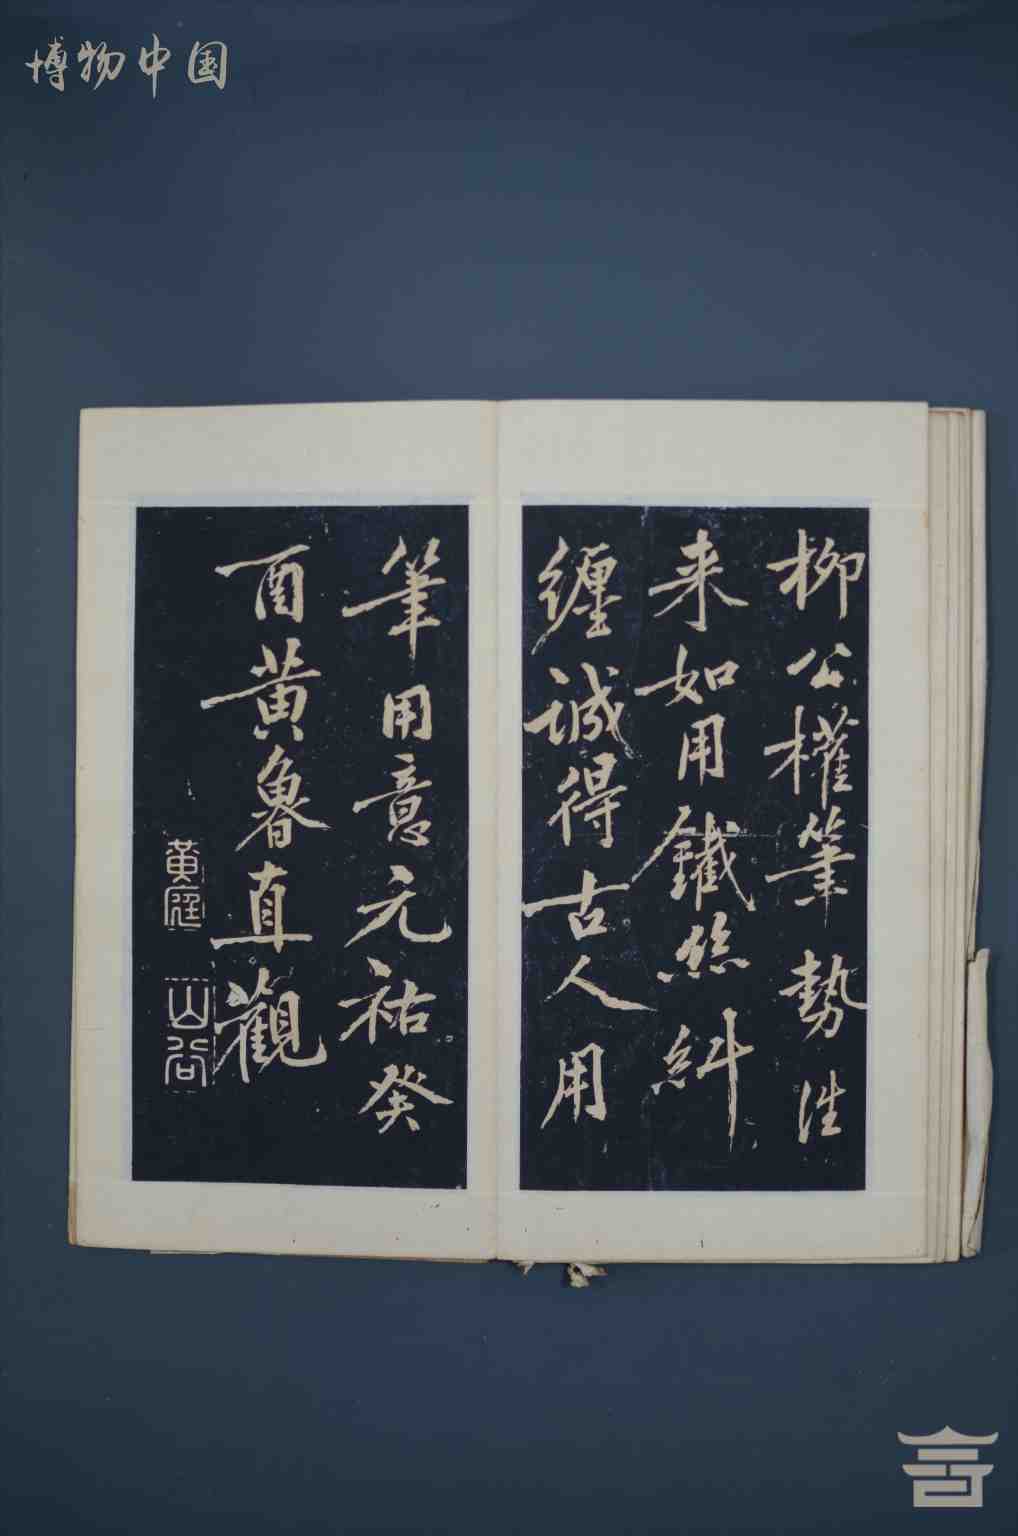 博物中国
柳公權筆勢往
来如用鐵絲糾
纏誠得古人用
筆用意元祐癸
酉黄魯直觀
黄庭
山谷